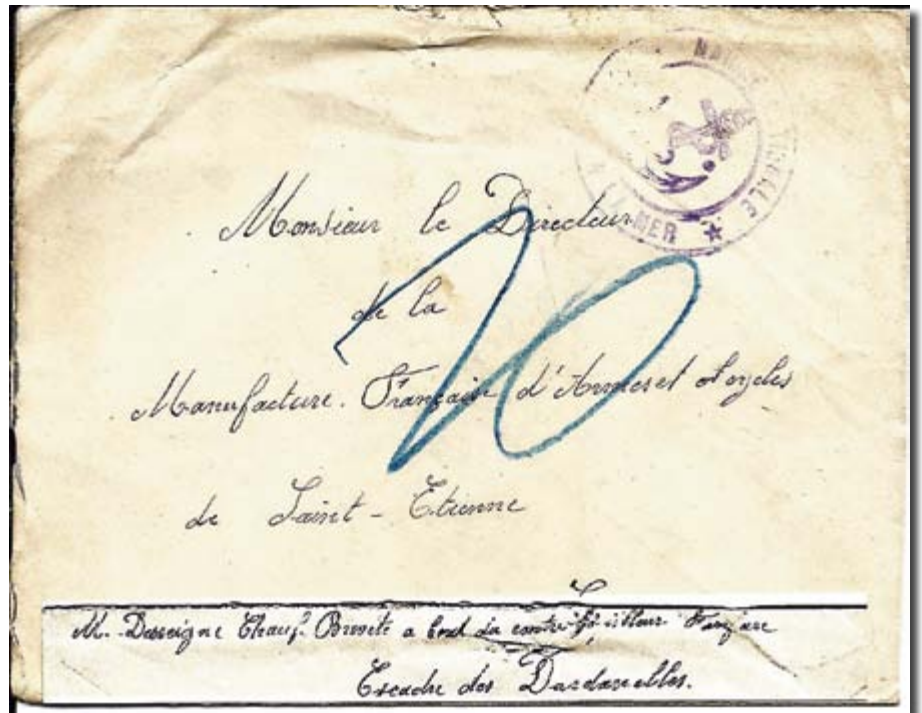 Monsieur le Directeur
de la
Manufacture Française d'Armes et Cycles
de Saint-Etienne
20
MER ★
M. Dasseigne Chauf. Breveté a bord du contre Français
Escadre des Dardanelles.